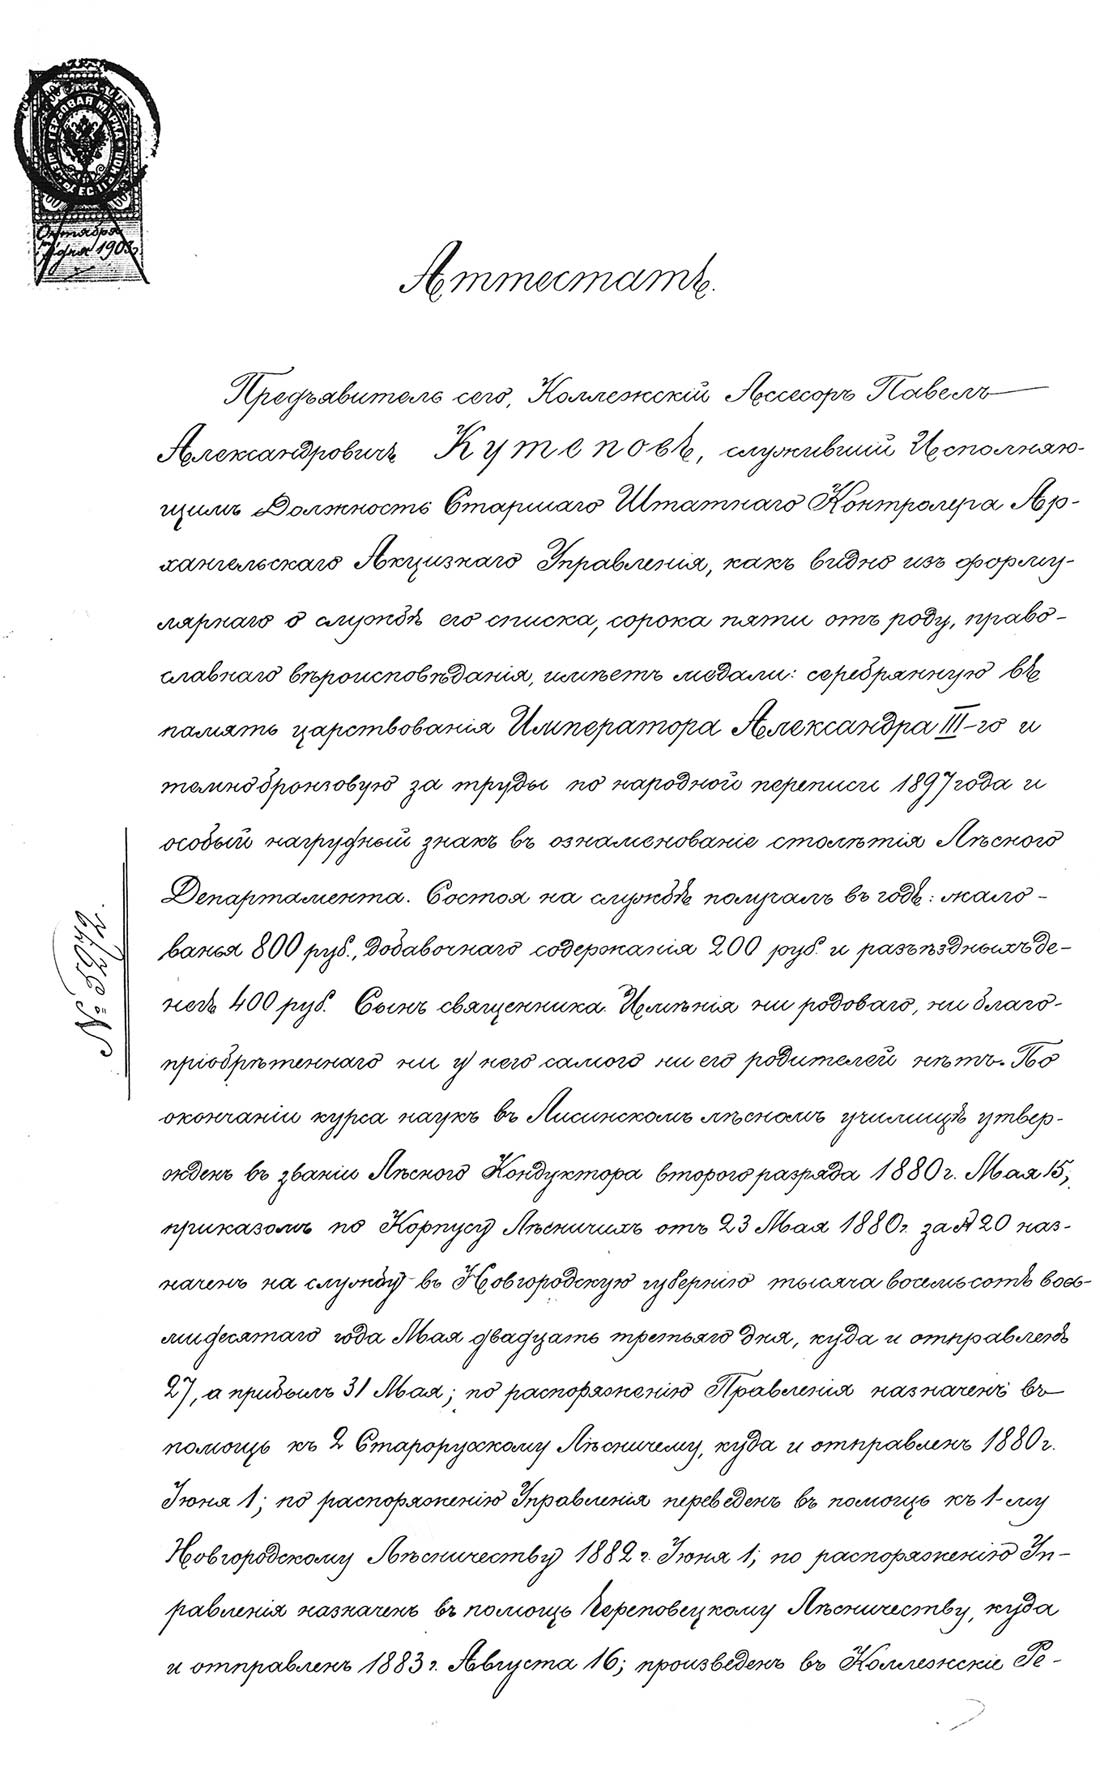 ГЕРБОВАЯ МАРКА
Октября
7 дня 1903
Аттестатъ.
Предъявитель сего, Коллежскій Ассесоръ Павелъ
Александровичъ Кутеповъ, служившій Исполняю-
щимъ Должность Старшаго Штатнаго Контролера Ар-
хангельскаго Акцизнаго Управленія, какъ видно изъ форму-
лярнаго о службѣ его списка, сорока пяти отъ роду, право-
славнаго вѣроисповѣданія, имѣетъ медали: серебрянную въ
память царствованія Императора Александра III-го и
темнобронзовую за труды по народной переписи 1897 года и
особый нагрудный знакъ въ ознаменованіе столѣтія Лѣсного
Департамента. Состоя на службѣ получалъ въ годъ: жало-
ванья 800 руб., добавочнаго содержанія 200 руб. и разъѣздныхъ де-
негъ 400 руб. Сынъ священника. Имѣнія ни родоваго, ни благо-
пріобрѣтеннаго ни у него самого ни его родителей нѣтъ. По
окончаніи курса наукъ въ Лисинскомъ лѣсномъ училищѣ утвер-
жденъ въ званіи Лѣсного Кондуктора второго разряда 1880 г. Мая 15;
приказомъ по Корпусу Лѣсничихъ отъ 23 Мая 1880 г. за № 20 наз-
наченъ на службу въ Новгородскую губернію тысяча восемьсотъ вось-
мидесятаго года Мая двадцать третьяго дня, куда и отправленъ
27, а прибылъ 31 Мая; по распоряженію Правленія назначенъ въ
помощь къ 2 Старорусскому Лѣсничему, куда и отправленъ 1880 г.
Іюня 1; по распоряженію Управленія переведенъ въ помощь къ 1-му
Новгородскому Лѣсничеству 1882 г. Іюня 1; по распоряженію Уп-
равленія назначенъ въ помощь Череповецкому Лѣсничеству, куда
и отправленъ 1883 г. Августа 16; произведенъ въ Коллежскіе Ре-